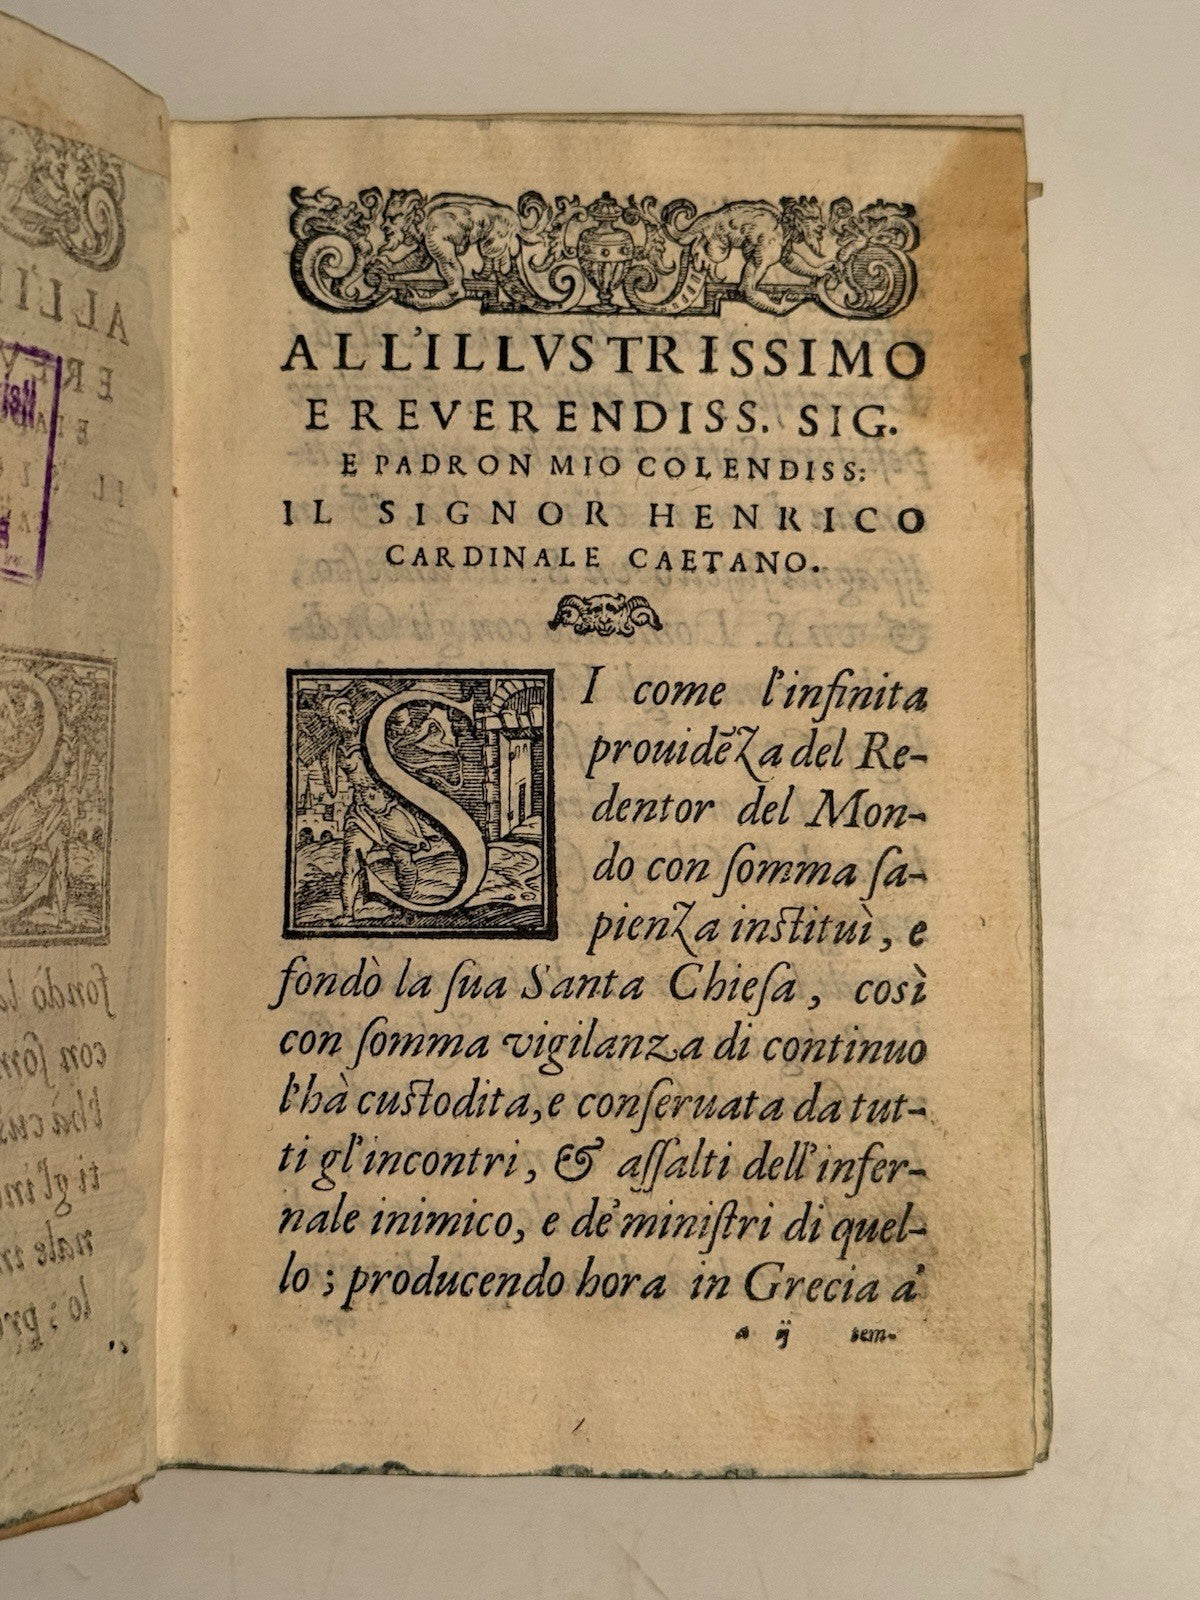 ALL'ILLVSTRISSIMO
E REVERENDISS. SIG.
E PADRON MIO COLENDISS:
IL SIGNOR HENRICO
CARDINALE CAETANO.
SI come l'infinita
prouidẽza del Re-
dentor del Mon-
do con ſomma ſa-
pienza inſtituì, e
fondò la ſua Santa Chieſa, così
con ſomma vigilanza di continuo
l'hà cuſtodita, e conſeruata da tut-
ti gl'incontri, & aſſalti dell'infer-
nale inimico, e de' miniſtri di quel-
lo; producendo hora in Grecia à
a ij sem-